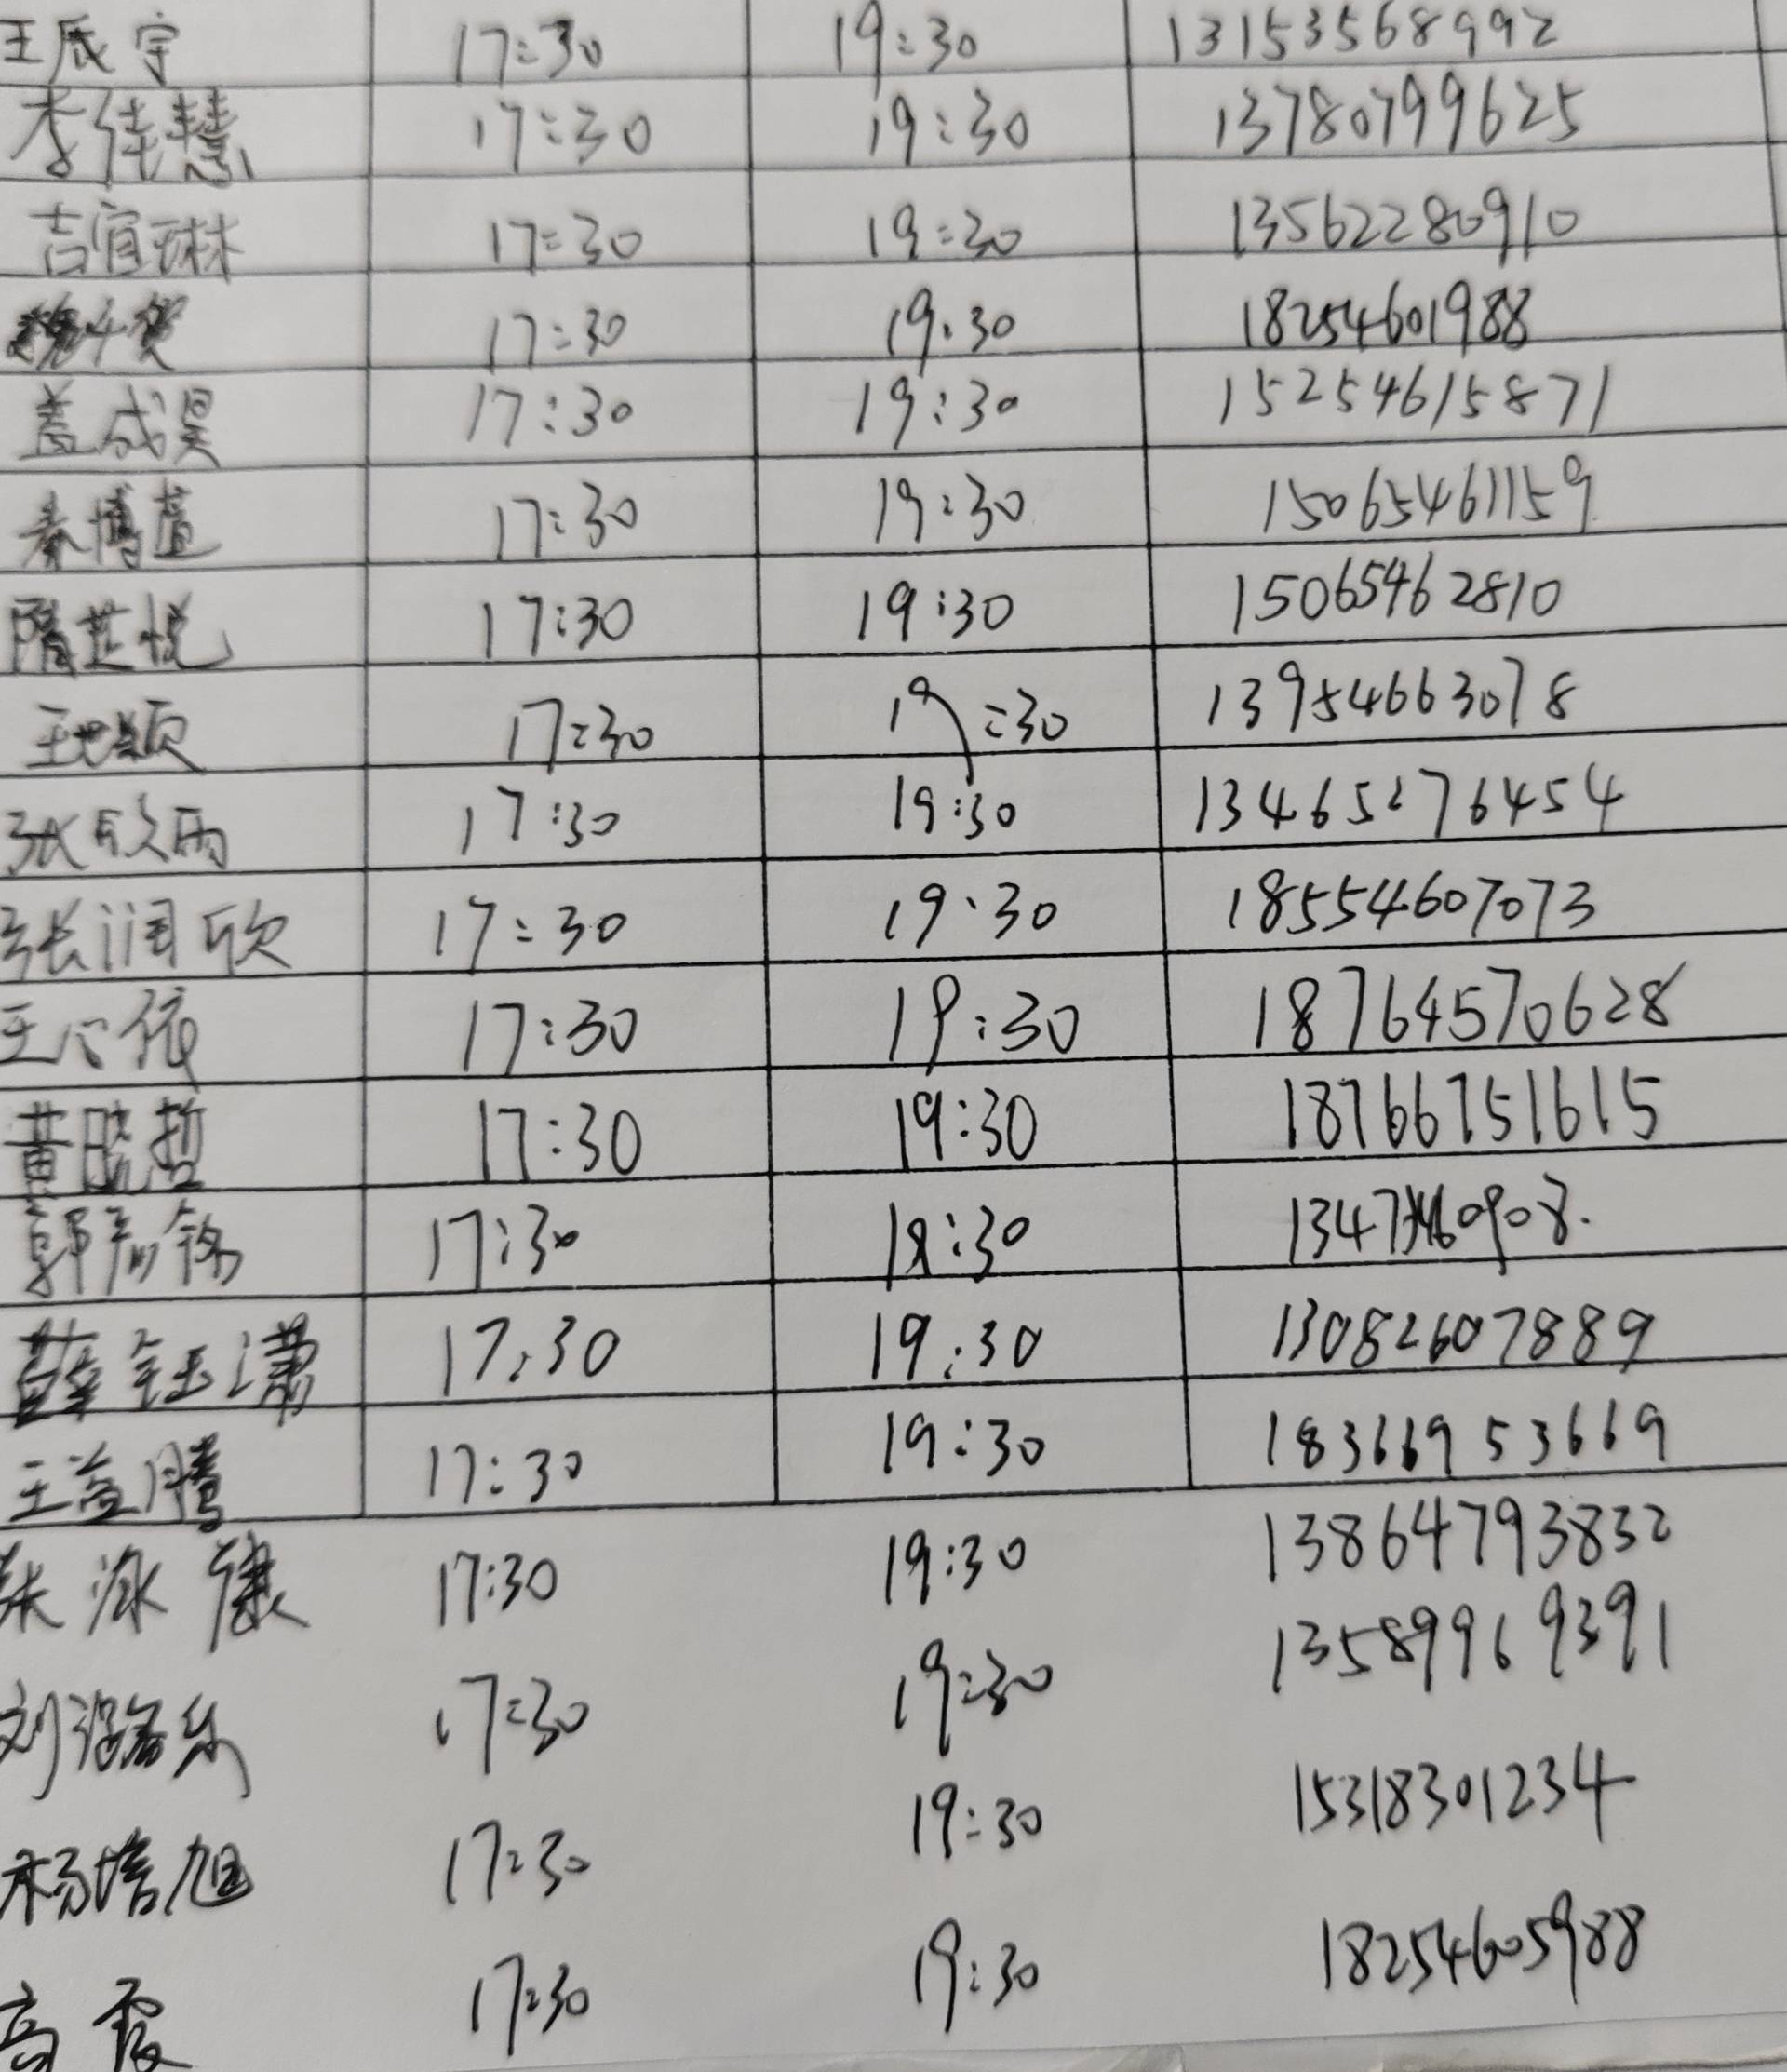 王辰宇 17:30 19:30 13153568992
李佳慧 17:30 19:30 13780799625
吉宜琳 17:30 19:30 13562280910
17:30 19:30 18254601988
盖成昊 17:30 19:30 15254615871
秦博萱 17:30 19:30 15065461159
隋芷悦 17:30 19:30 15065462810
17:30 19:30 13954663078
张欣雨 17:30 19:30 13465276454
张润欣 17:30 19:30 18554607073
王心依 17:30 19:30 18764570628
黄晓哲 17:30 19:30 18766751615
17:30 19:30
薛钰潇 17:30 19:30 13082607889
王益腾 17:30 19:30 18366953669
17:30 19:30 13864793832
刘潞乐 17:30 19:30 13589969391
17:30 19:30 15318301234
高霞 17:30 19:30 18254605988